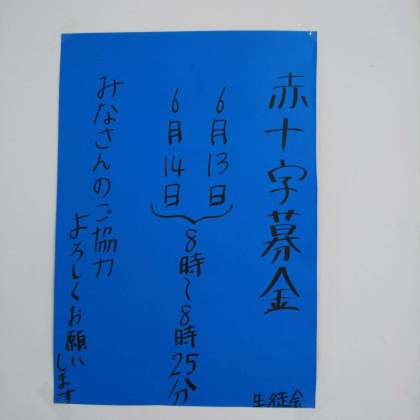 赤十字募金
6月13日
6月14日
8時〜8時25分
みなさんのご協力
よろしくお願い
します
生徒会